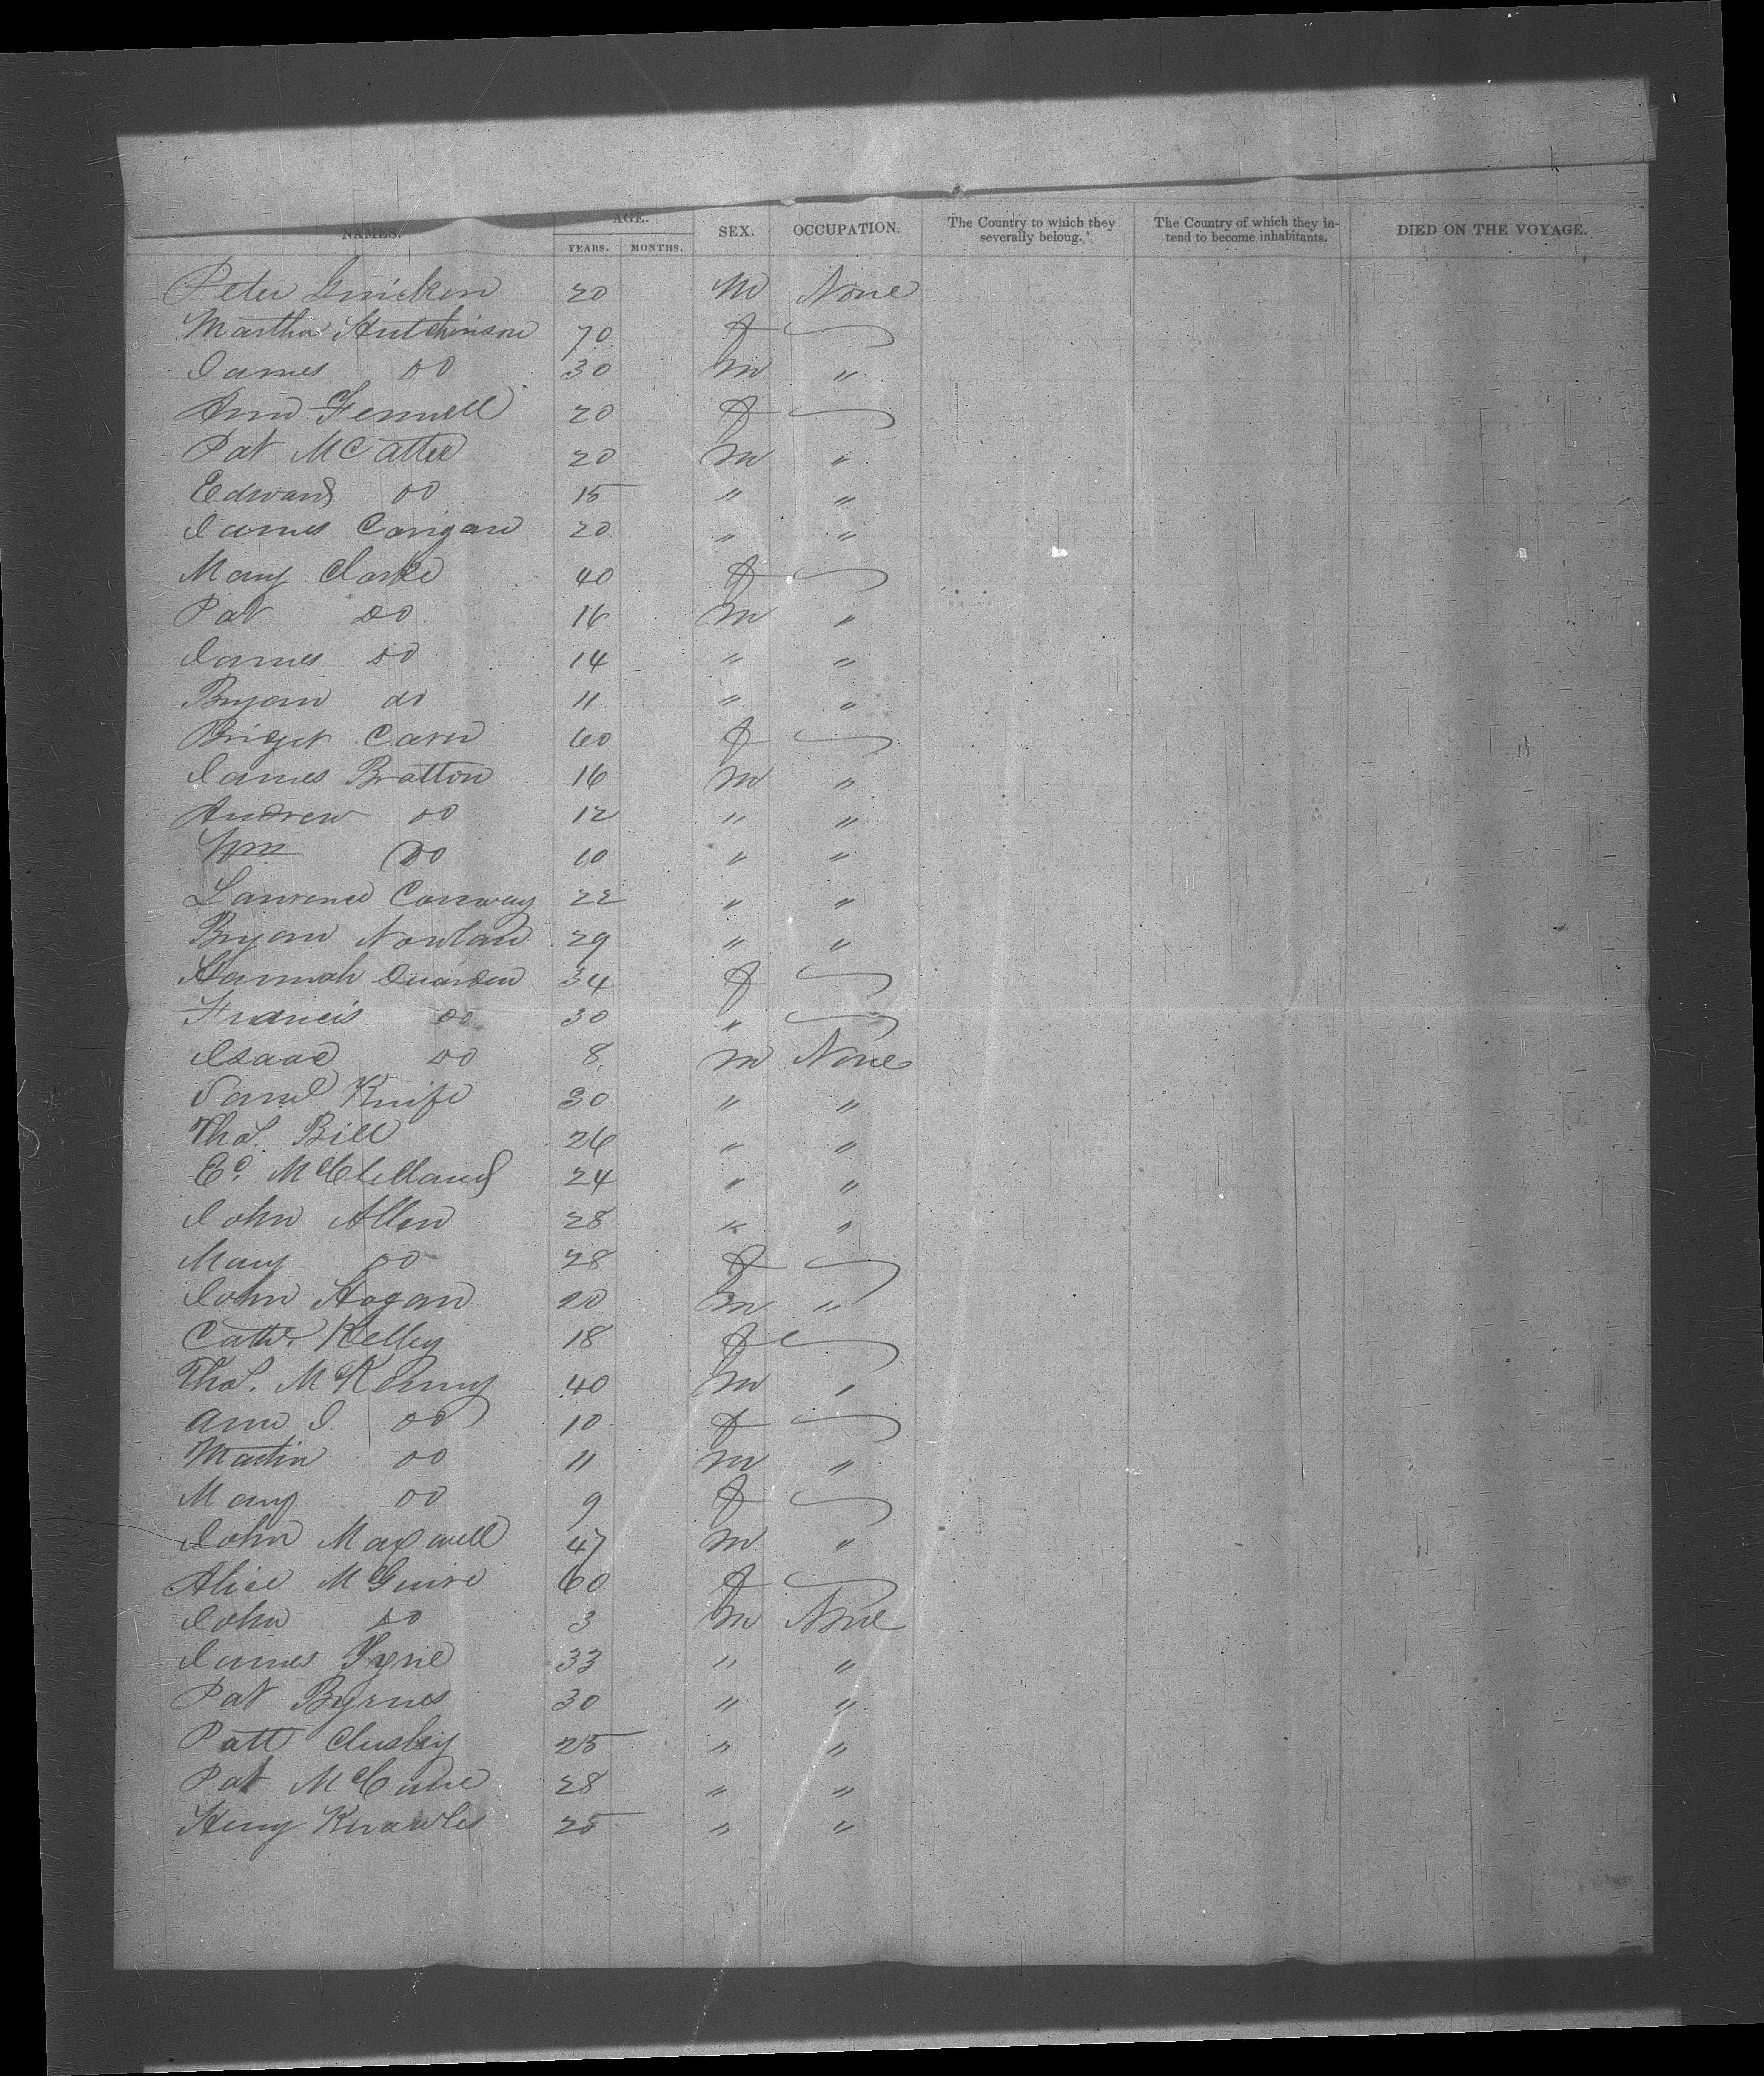 NAMES. AGE. SEX. OCCUPATION. The Country to which they severally belong. The Country of which they intend to become inhabitants. DIED ON THE VOYAGE.
YEARS. MONTHS.
Peter 20 M None
Martha Hutchinson 70 f
James Do 30 M "
Ann Fennell 20 f
Pat McAtee 20 M "
Edward Do 15 " "
James Corigan 20 " "
Mary Clarke 40 f
Pat Do 16 M "
James Do 14 " "
Bryan do 11 " "
Bridget 60 f
James Bratton 16 M "
Andrew Do 12 " "
Wm Do 10 " "
Lawrence Conway 22 " "
Bryan Nowlan 29 " "
Hannah 34 f
Francis Do 30 "
Isaac Do 8 M None
Saml Knife 30 " "
Thos. Bill 26 " "
Ed. McClelland 24 " "
John Allen 28 " "
Mary Do 28 f
John Hogan 20 M "
Cathe. Kelley 18 f
Thos. McKenny 40 M "
Ann J. Do 10 f
Martin Do 11 M "
Mary Do 9 f
John Maxwell 47 M "
Alice McGuire 60 f
John Do 3 M None
James 33 " "
Pat Byrnes 30 " "
Patt Clusky 25 " "
Pat 28 " "
Henry Knowles 25 " "